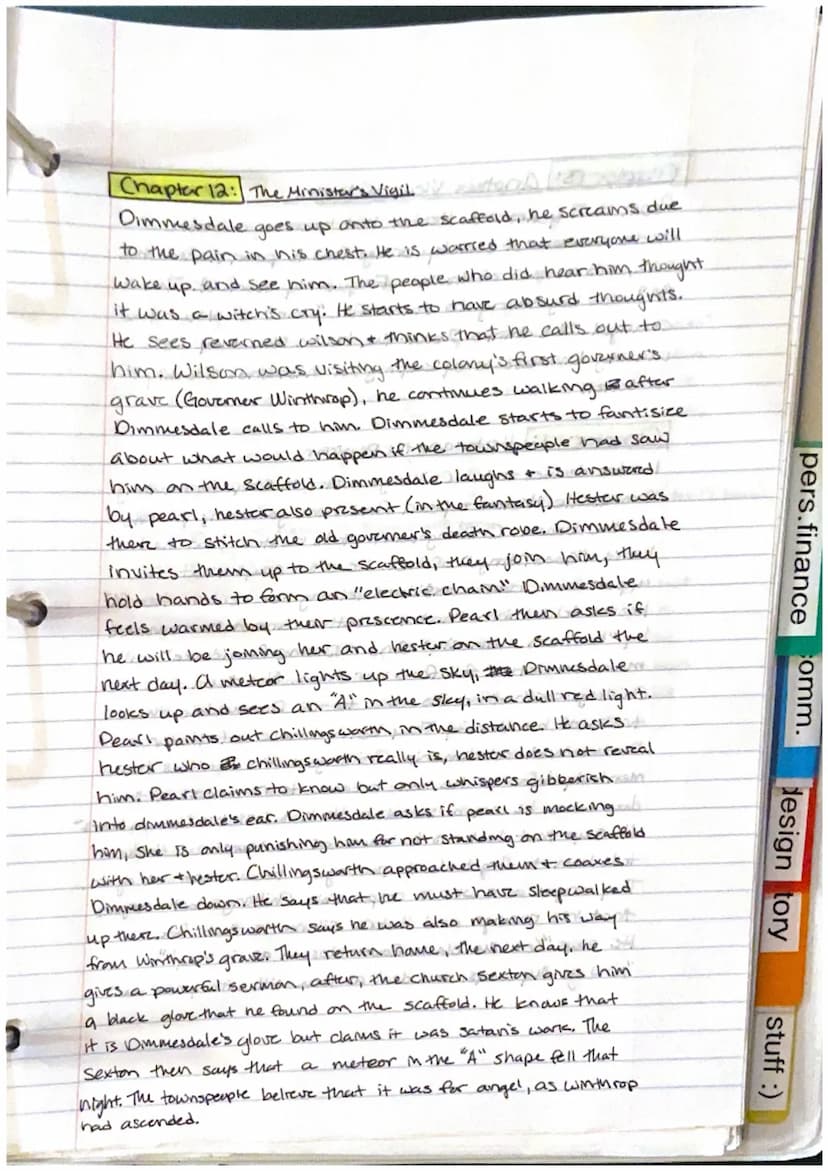 Chapter 12: The Minister's Vigil
Dimmesdale goes up onto the scaffold, he screams due
to the pain in his chest. He is worried that everyone will
wake up and see him. The people who did hear him thought
it was a witch's cry. He starts to have absurd thoughts.
He sees reverned wilson + thinks that he calls out to
him. Wilson was visiting the colony's first governer's
grave (Governer Winthrop), he continues walking after
Dimmesdale calls to him. Dimmesdale starts to fantisize
about what would happen if the townspeople had saw
him on the scaffold. Dimmesdale laughs + is answered
by pearl, hester also present (in the fantasy) Hester was
there to stitch the old governer's death robe. Dimmesdale
invites them up to the scaffold, they join him, they
hold hands to form an "electric chain." Dimmesdale
feels warmed by their prescence. Pearl then asks if
he will be joining her and hester on the scaffold the
next day. A meteor lights up the sky, Dimmesdale
looks up and sees an "A" in the sky, in a dull red light.
Pearl points out chillingsworth, in the distance. He asks
hester who chillingsworth really is, hester does not reveal
him. Pearl claims to know but only whispers gibberish
into dimmesdale's ear. Dimmesdale asks if pearl is mocking
him, she is only punishing him for not standing on the scaffold
with her + hester. Chillingsworth approached them + coaxes
Dimmesdale down. He says that he must have sleepwalked
up there. Chillingsworth says he was also making his way
from Winthrop's grave. They return home, the next day, he
gives a powerful sermon, after, the church sexton gives him
a black glove that he found on the scaffold. He knows that
it is Dimmesdale's glove but claims it was satan's work. The
sexton then says that a meteor in the "A" shape fell that
night. The townspeople believe that it was for angel, as winthrop
had ascended.
pers.finance
omm.
design
tory
stuff :)